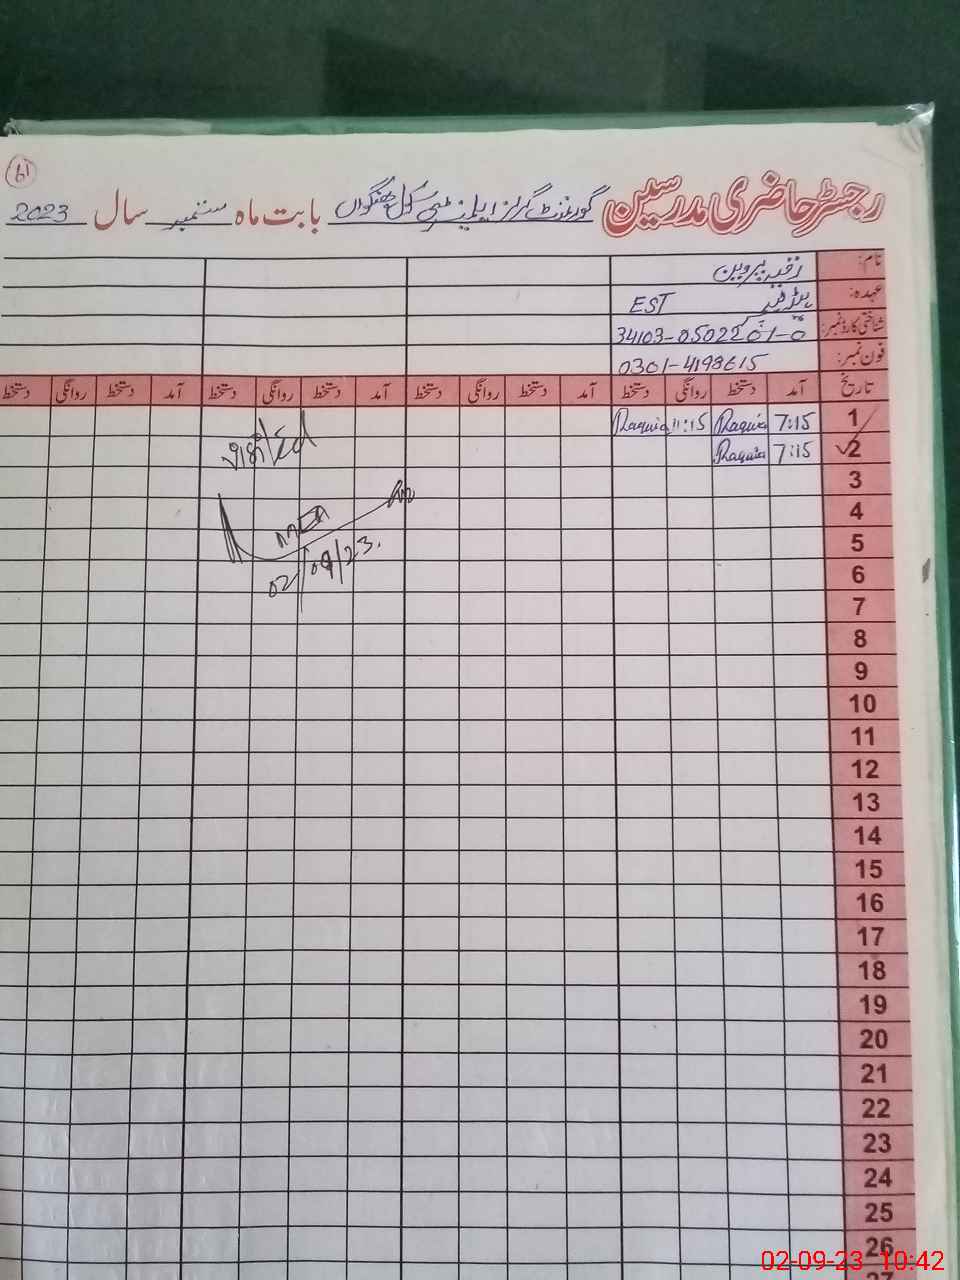 رجسٹر حاضری مدرسین گورنمنٹ گرلز ایلیمنٹری سکول بھنگواں بابت ماہ ستمبر سال 2023
نام: رقیہ پروین
عہدہ: EST
شناختی کارڈ نمبر:
فون نمبر: 0301-4198615
تاریخ آمد دستخط روانگی دستخط آمد دستخط روانگی دستخط آمد دستخط روانگی دستخط آمد دستخط روانگی دستخط
1 7:15 Raquia 11:15 Raquia
2 7:15 Raquia
Visited
3
4
5
02/09/23.
6
7
8
9
10
11
12
13
14
15
16
17
18
19
20
21
22
23
24
25
26
27
02-09-23 10:42